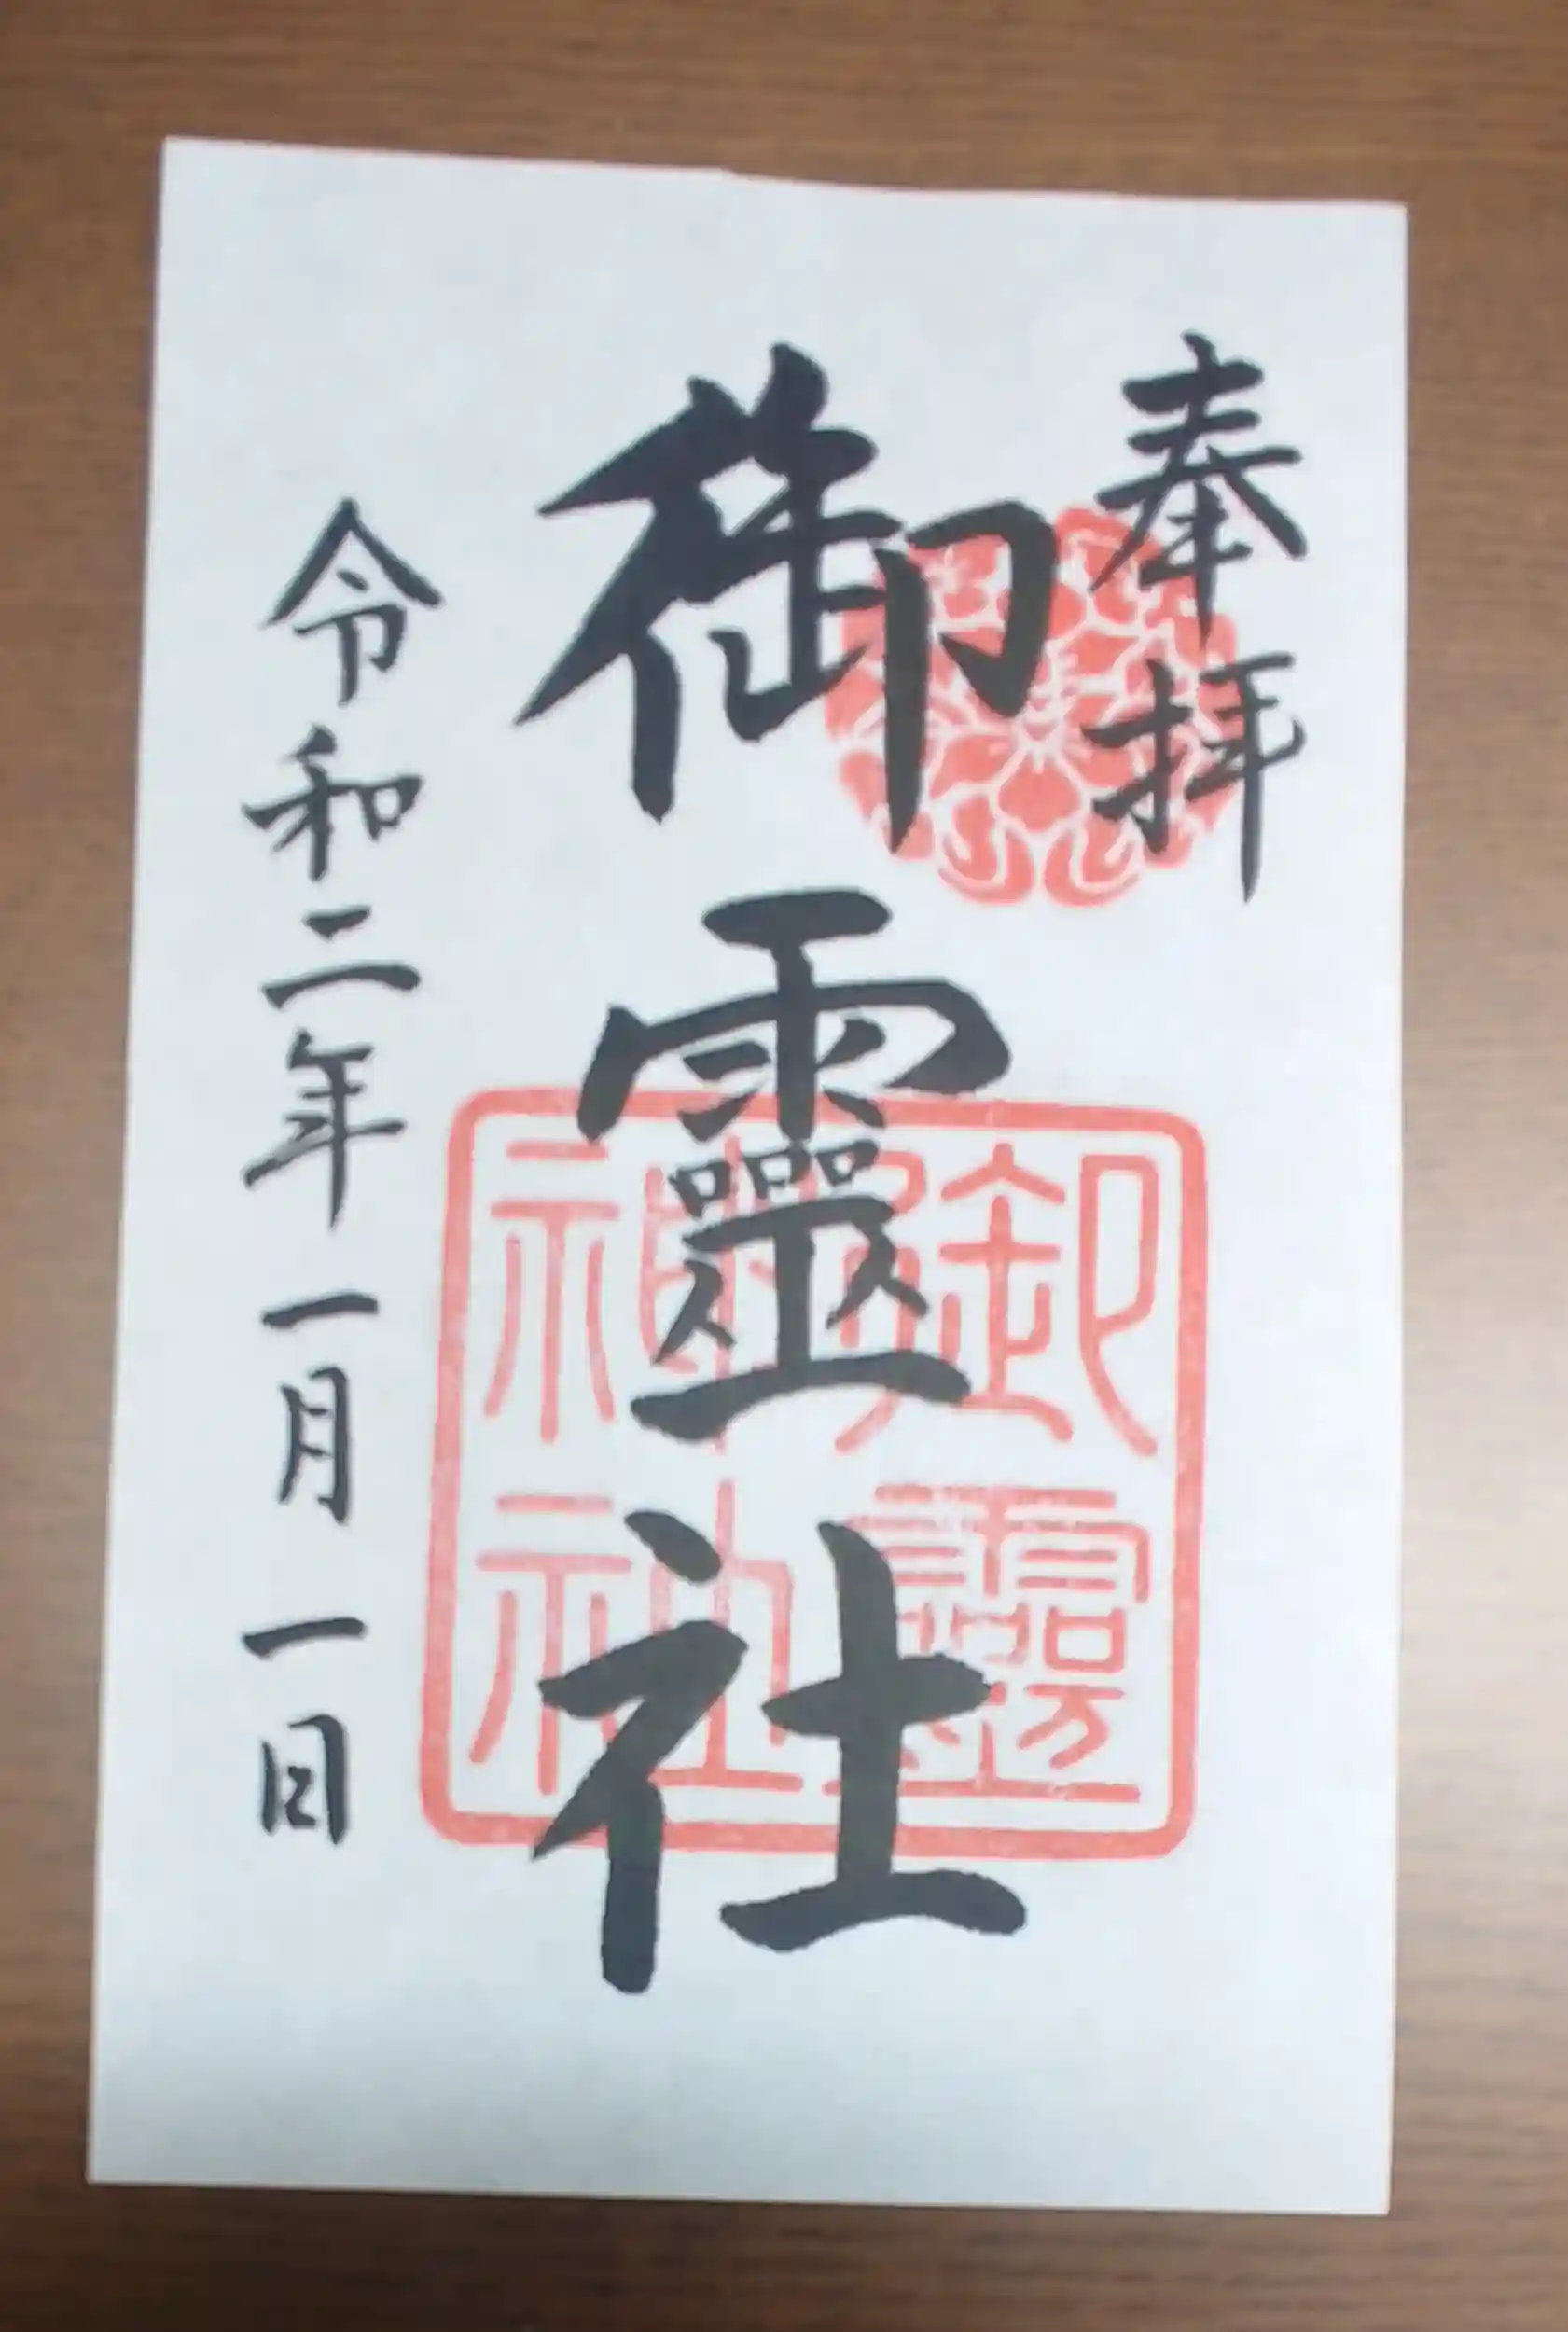 奉拝
御靈社
御靈
神社
令和二年一月一日